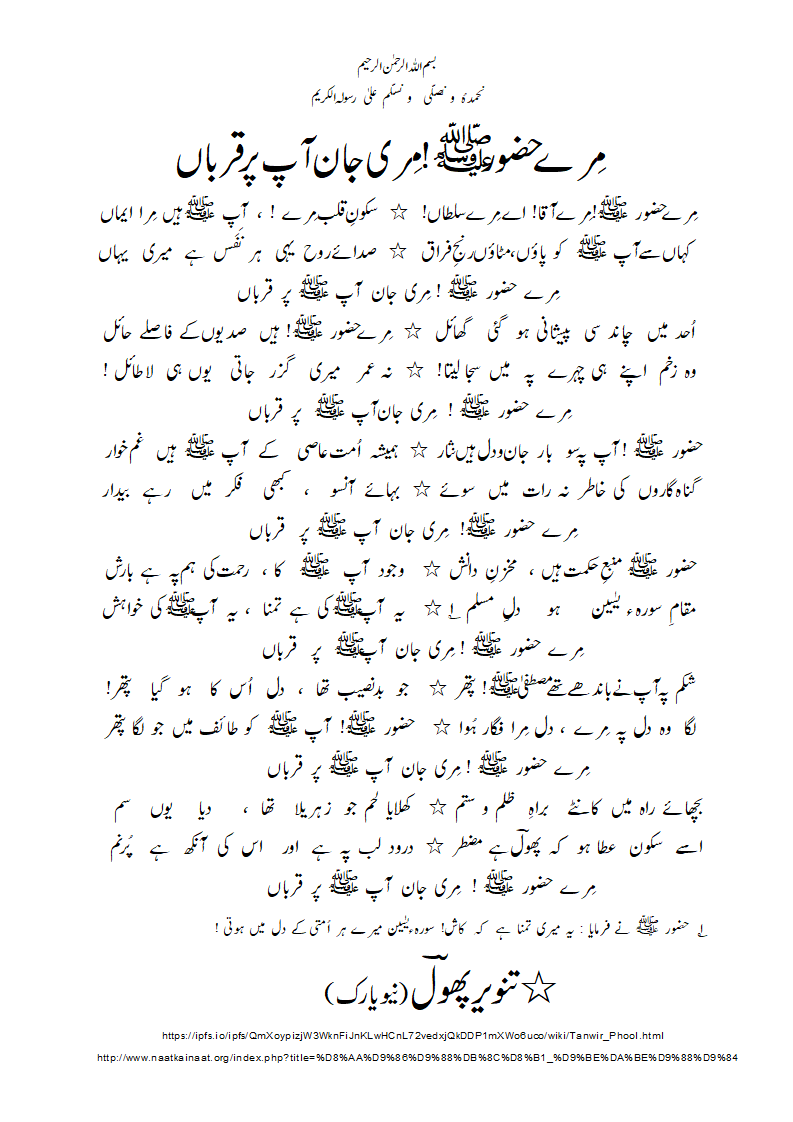 بسم اللہ الرحمٰن الرحیم
نحمدہٗ و نصلّی و نسلّم علیٰ رسولہ الکریم
مِرے حضورﷺ!مِری جان آپ پر قرباں
مِرے حضور ﷺ!مِرے آقا! اے مِرے سلطاں! ☆ سکونِ قلب مِرے ! ، آپ ﷺ ہیں مِرا ایماں
کہاں سے آپ ﷺ کو پاؤں، مٹاؤں رنجِ فراق ☆ صدائے روح یہی ہر نَفَس ہے میری یہاں
مِرے حضور ﷺ ! مِری جان آپ ﷺ پر قرباں
اُحد میں چاند سی پیشانی ہو گئی گھائل ☆ مِرے حضور ﷺ! ہیں صدیوں کے فاصلے حائل
وہ زخم اپنے ہی چہرے پہ میں سجا لیتا! ☆ نہ عمر میری گزر جاتی یوں ہی لاطائل !
مِرے حضور ﷺ ! مِری جان آپ ﷺ پر قرباں
حضور ﷺ !آپ پہ سو بار جان و دل ہیں نثار ☆ ہمیشہ اُمت عاصی کے آپ ﷺ ہیں غم خوار
گناہ گاروں کی خاطر نہ رات میں سوئے ☆ بہائے آنسو ، کبھی فکر میں رہے بیدار
مِرے حضور ﷺ! مِری جان آپ ﷺ پر قرباں
حضور ﷺ منبعِ حکمت ہیں ، مخزنِ دانش ☆ وجود آپ ﷺ کا ، رحمت کی ہم پہ ہے بارش
مقامِ سورہء یٰسین ہو دلِ مسلم ۱؎ ☆ یہ آپﷺ کی ہے تمنا ، یہ آپﷺ کی خواہش
مِرے حضور ﷺ ! مِری جان آپﷺ پر قرباں
شکم پہ آپ نے باندھے تھے مصطفیٰﷺ! پتھر ☆ جو بدنصیب تھا ، دل اُس کا ہو گیا پتھر!
لگا وہ دل پہ مِرے ، دل مِرا فگار ہُوا ☆ حضور ﷺ! آپ ﷺ کو طائف میں جو لگا پتھر
مِرے حضور ﷺ ! مِری جان آپ ﷺ پر قرباں
بچھائے راہ میں کانٹے براہِ ظلم و ستم ☆ کھلایا لحم جو زہریلا تھا ، دیا یوں سم
اسے سکون عطا ہو کہ پھولؔ ہے مضطر ☆ درود لب پہ ہے اور اس کی آنکھ ہے پُرنم
مِرے حضور ﷺ ! مِری جان آپ ﷺ پر قرباں
۱؎ حضور ﷺ نے فرمایا : یہ میری تمنا ہے کہ کاش! سورہء یٰسین میرے ہر اُمتی کے دل میں ہوتی !
☆تنویر پھولؔ (نیویارک)
https://ipfs.io/ipfs/QmXoypizjW3WknFiJnKLwHCnL72vedxjQkDDP1mXWo6uco/wiki/Tanwir_Phool.html
http://www.naatkainaat.org/index.php?title=%D8%AA%D9%86%D9%88%DB%8C%D8%B1_%D9%BE%DA%BE%D9%88%D9%84